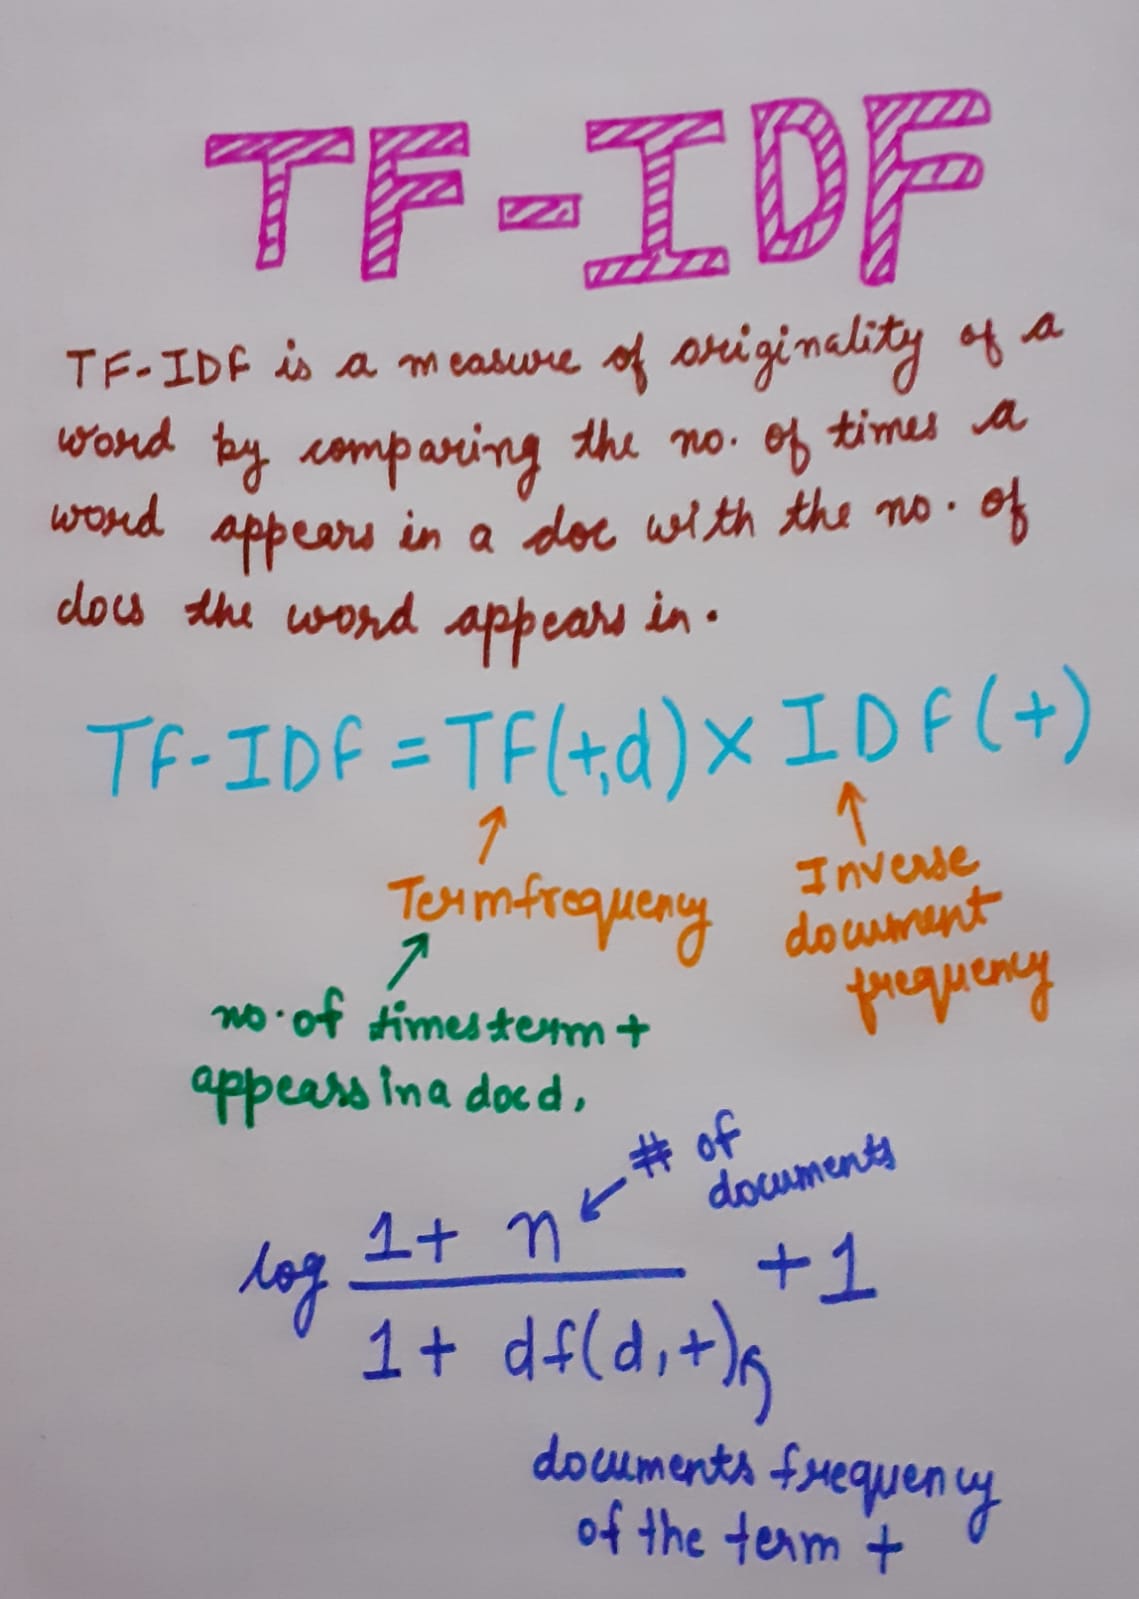 TF-IDF
TF-IDF is a measure of originality of a
word by comparing the no. of times a
word appears in a doc with the no. of
docs the word appears in.
TF-IDF = TF(t,d) × IDF(t)
Term frequency
Inverse
document
frequency
no. of times term t
appears in a doc d,
# of
documents
log (1 + n) / (1 + df(d,t)) + 1
documents frequency
of the term t